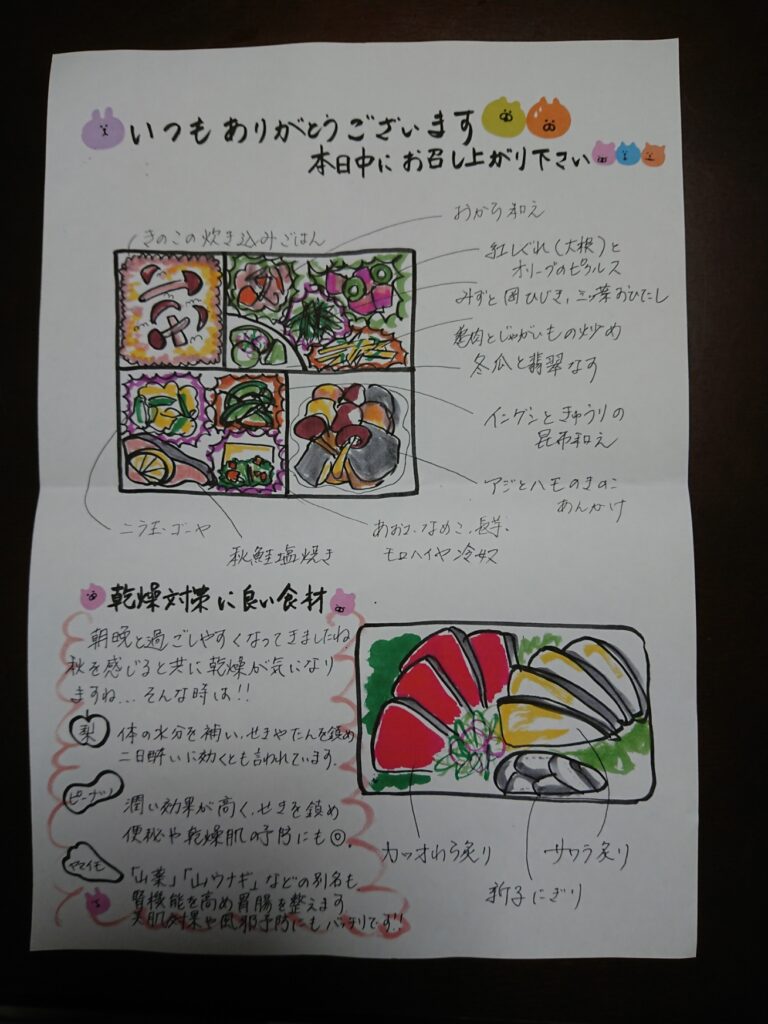 いつもありがとうございます
本日中にお召し上がり下さい
きのこの炊き込みごはん
おから和え
紅しぐれ(大根)と
オリーブのピクルス
みずと岡ひじき、三ッ葉おひたし
鶏肉とじゃがいもの炒め
冬瓜と翡翠なす
インゲンときゅうりの
昆布和え
アジとハモのきのこ
あんかけ
ニラ玉ゴーヤ
秋鮭塩焼き
あおさ、なめこ、長芋、
モロヘイヤ冷奴
乾燥対策に良い食材
朝晩と過ごしやすくなってきましたね
秋を感じると共に乾燥が気になり
ますね...そんな時は!!
梨
体の水分を補い、せきやたんを鎮め
二日酔いに効くとも言われています。
ピーナツ
潤い効果が高く、せきを鎮め
便秘や乾燥肌の予防にも◎。
ヤマイモ
「山薬」「山ウナギ」などの別名も
腎機能を高め胃腸を整えます
美肌効果や風邪予防にもバッチリです!!
カツオわら炙り
サワラ炙り
新子にぎり